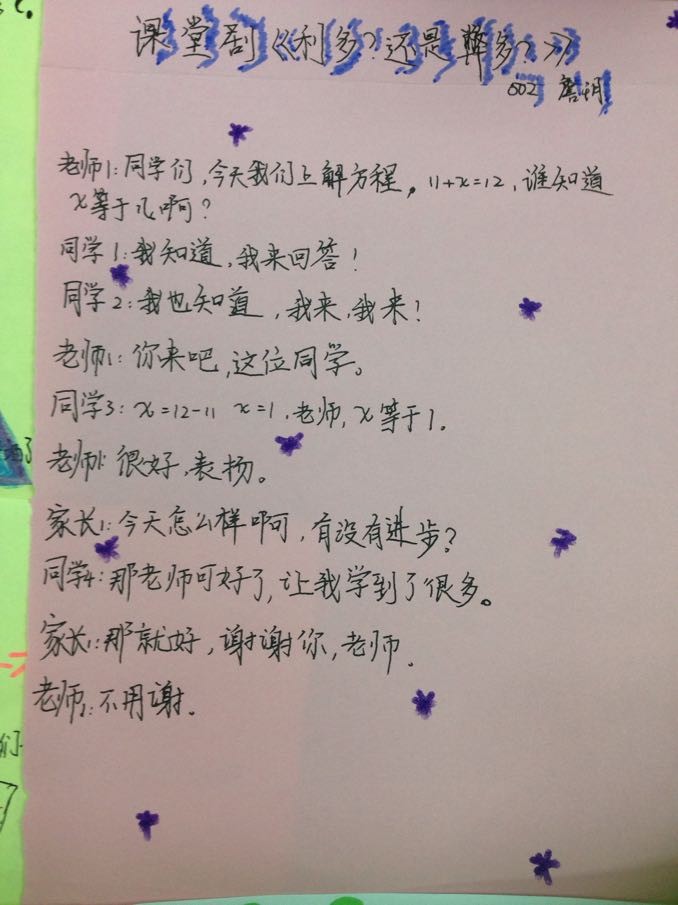 课堂剧《利多？还是弊多？》
602 詹玥
老师1：同学们，今天我们上解方程，11+x=12，谁知道
x等于几啊？
同学1：我知道，我来回答！
同学2：我也知道，我来，我来！
老师1：你来吧，这位同学。
同学3：x=12-11 x=1，老师，x等于1。
老师1：很好，表扬。
家长1：今天怎么样啊，有没有进步？
同学4：那老师可好了，让我学到了很多。
家长1：那就好，谢谢你，老师。
老师1：不用谢。